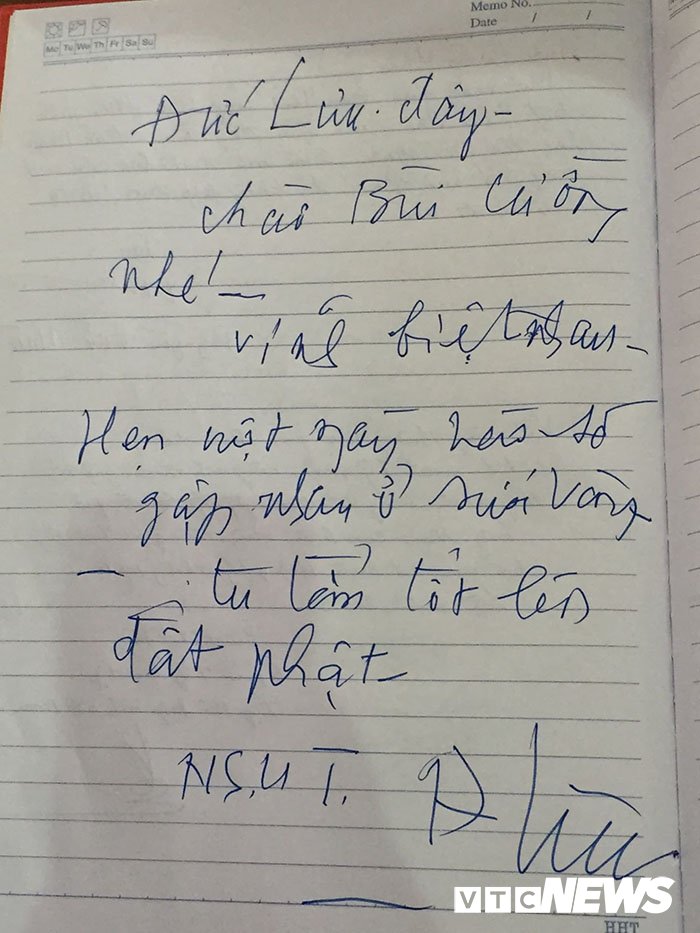 Memo No.
Date / /
Mo Tu We Th Fr Sa Su
Đức Lưu đây -
chào Bùi Cường
nhé! -
vĩnh biệt nhau -
Hẹn một ngày nào đó
gặp nhau ở suối vàng
- tu tâm tốt lên
đất phật -
N.S.Ư T. Đ Lưu
VTC NEWS
HHT